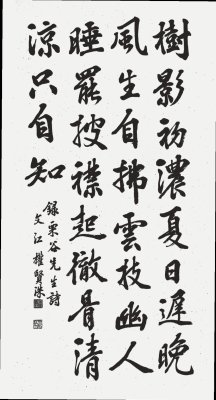 樹影初濃夏日遲晚
風生自拂雲枝幽人
睡罷披襟起徹骨清
涼只自知
錄栗谷先生詩
文江 權賢洙